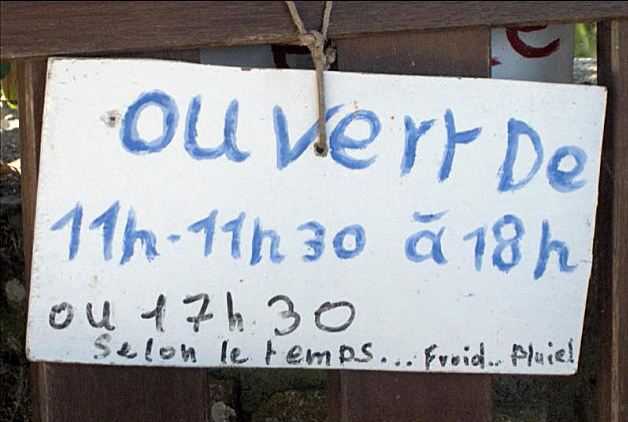 ouvert De
11h-11h30 à 18h
ou 17h30
Selon le temps... Froid.. Pluie!